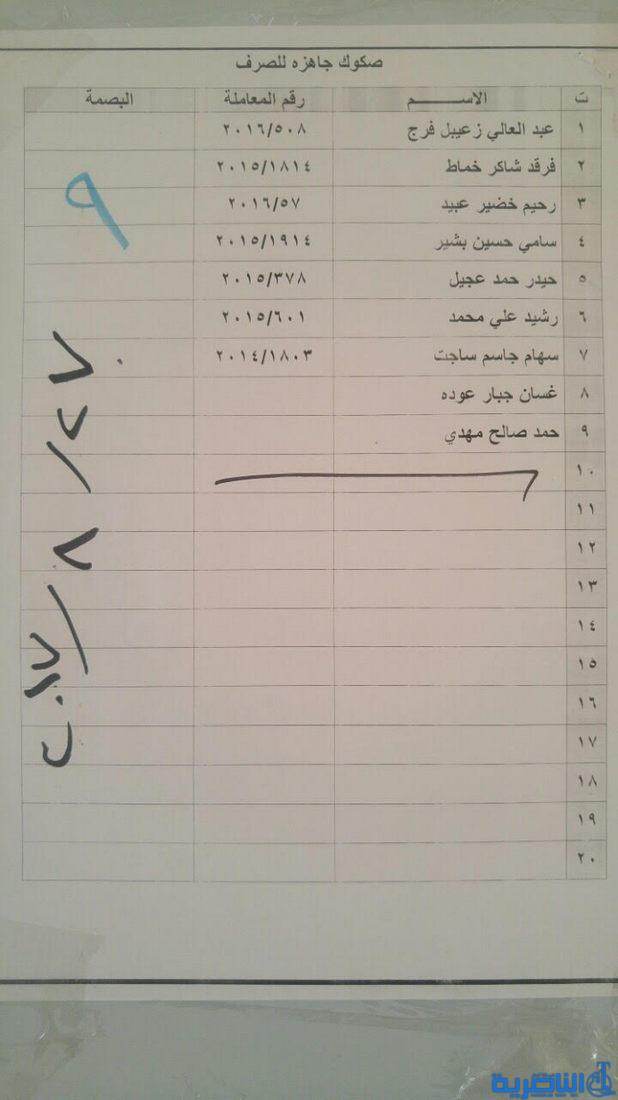 صكوك جاهزه للصرف
ت الاســـــم رقم المعاملة البصمة
١ عبد العالي زعيبل فرج ٢٠١٦/٥٠٨
٢ فرقد شاكر خماط ٢٠١٥/١٨١٤
٣ رحيم خضير عبيد ٢٠١٦/٥٧
٤ سامي حسين بشير ٢٠١٥/١٩١٤
٥ حيدر حمد عجيل ٢٠١٥/٣٧٨
٦ رشيد علي محمد ٢٠١٥/٦٠١
٧ سهام جاسم ساجت ٢٠١٤/١٨٠٣
٨ غسان جبار عوده
٩ حمد صالح مهدي
١٠
١١
١٢
١٣
١٤
١٥
١٦
١٧
١٨
١٩
٢٠
٩
٢٧/٨/٢٠١٧
الناصرية